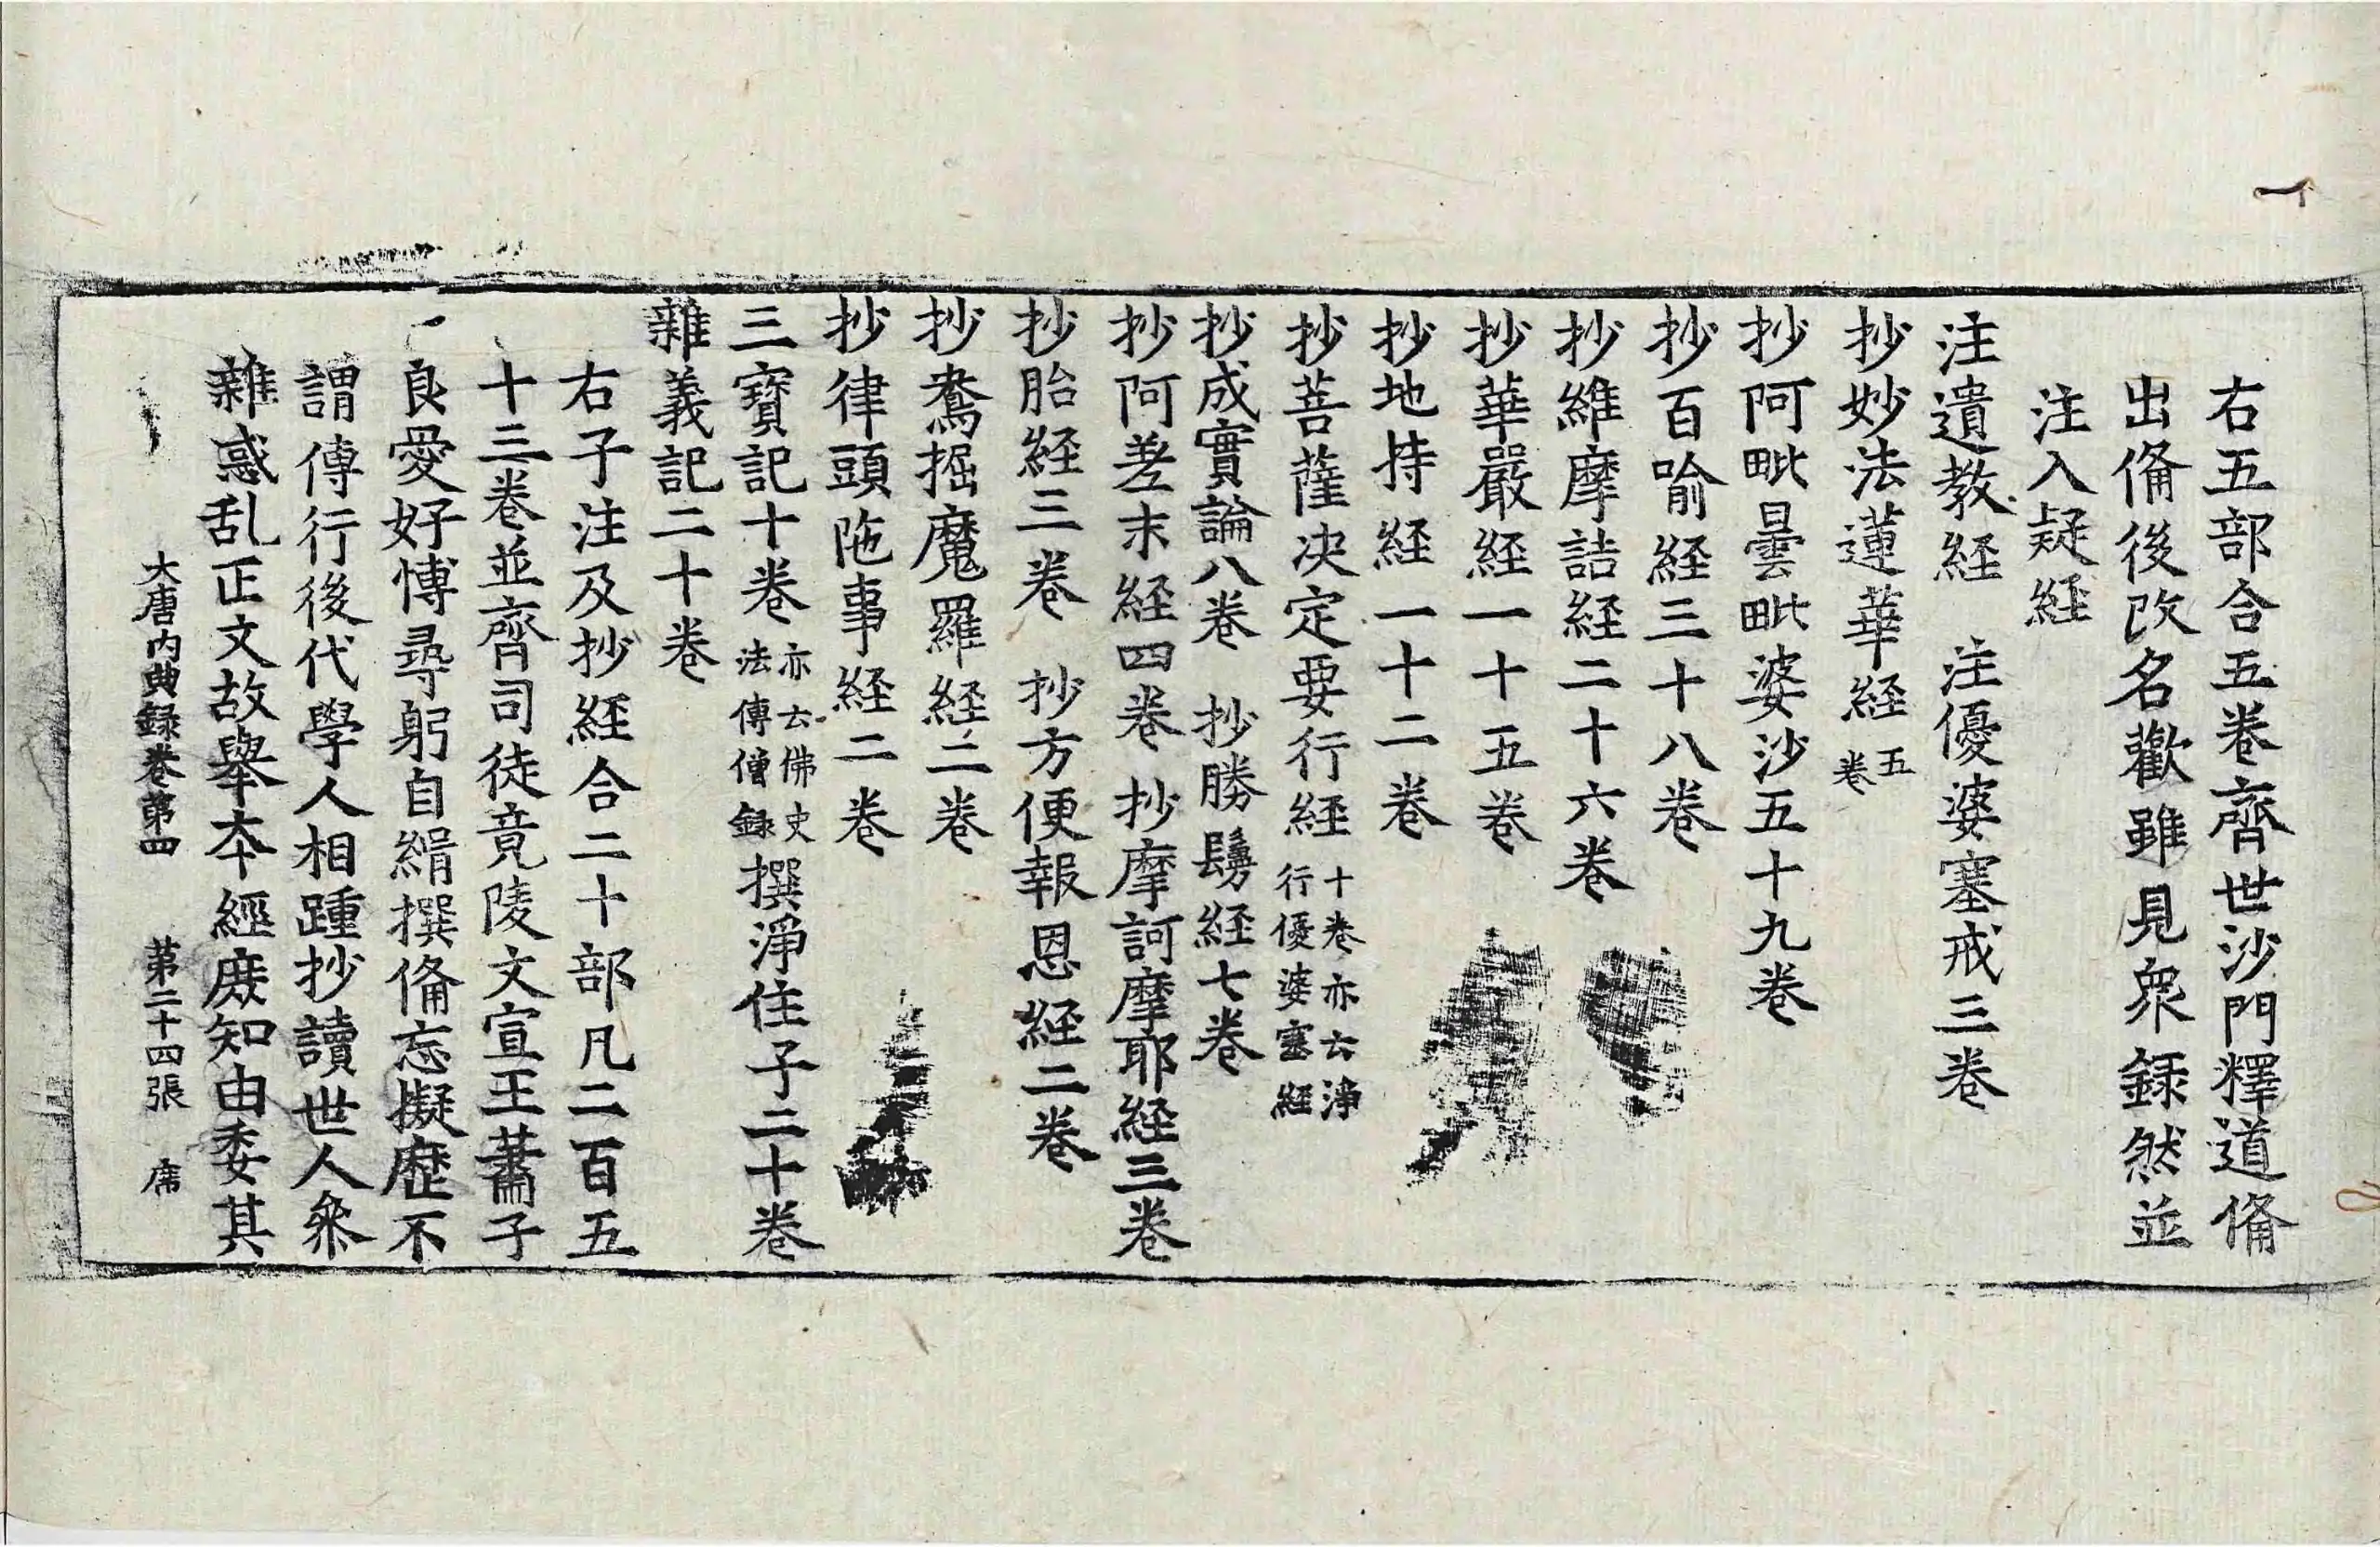 右五部合五卷齊世沙門釋道俻
出俻後改名歡雖見衆録然並
注入疑経
注遺教経　注優婆塞戒三卷
抄妙法蓮華経五卷
抄阿毗曇毗婆沙五十九卷
抄百喻経三十八卷
抄維摩詰経二十六卷
抄華嚴経一十五卷
抄地持経一十二卷
抄菩薩决定要行経十卷亦云淨行優婆塞経
抄成實論八卷　抄勝鬘経七卷
抄阿差末経四卷　抄摩訶摩耶経三卷
抄胎経三卷　抄方便報恩経二卷
抄鴦掘魔羅経二卷
抄律頭陁事経二卷
三寳記十卷亦云佛史法傳僧録撰淨住子二十卷
雜義記二十卷
右子注及抄経合二十部凡二百五
十三卷並齊司徒竟陵文宣王蕭子
良愛好博尋躬自緝撰俻忘擬歷不
謂傳行後代學人相踵抄讀世人叅
雜惑乱正文故舉夲經庻知由委其
大唐内典録卷第四　第二十四張　席